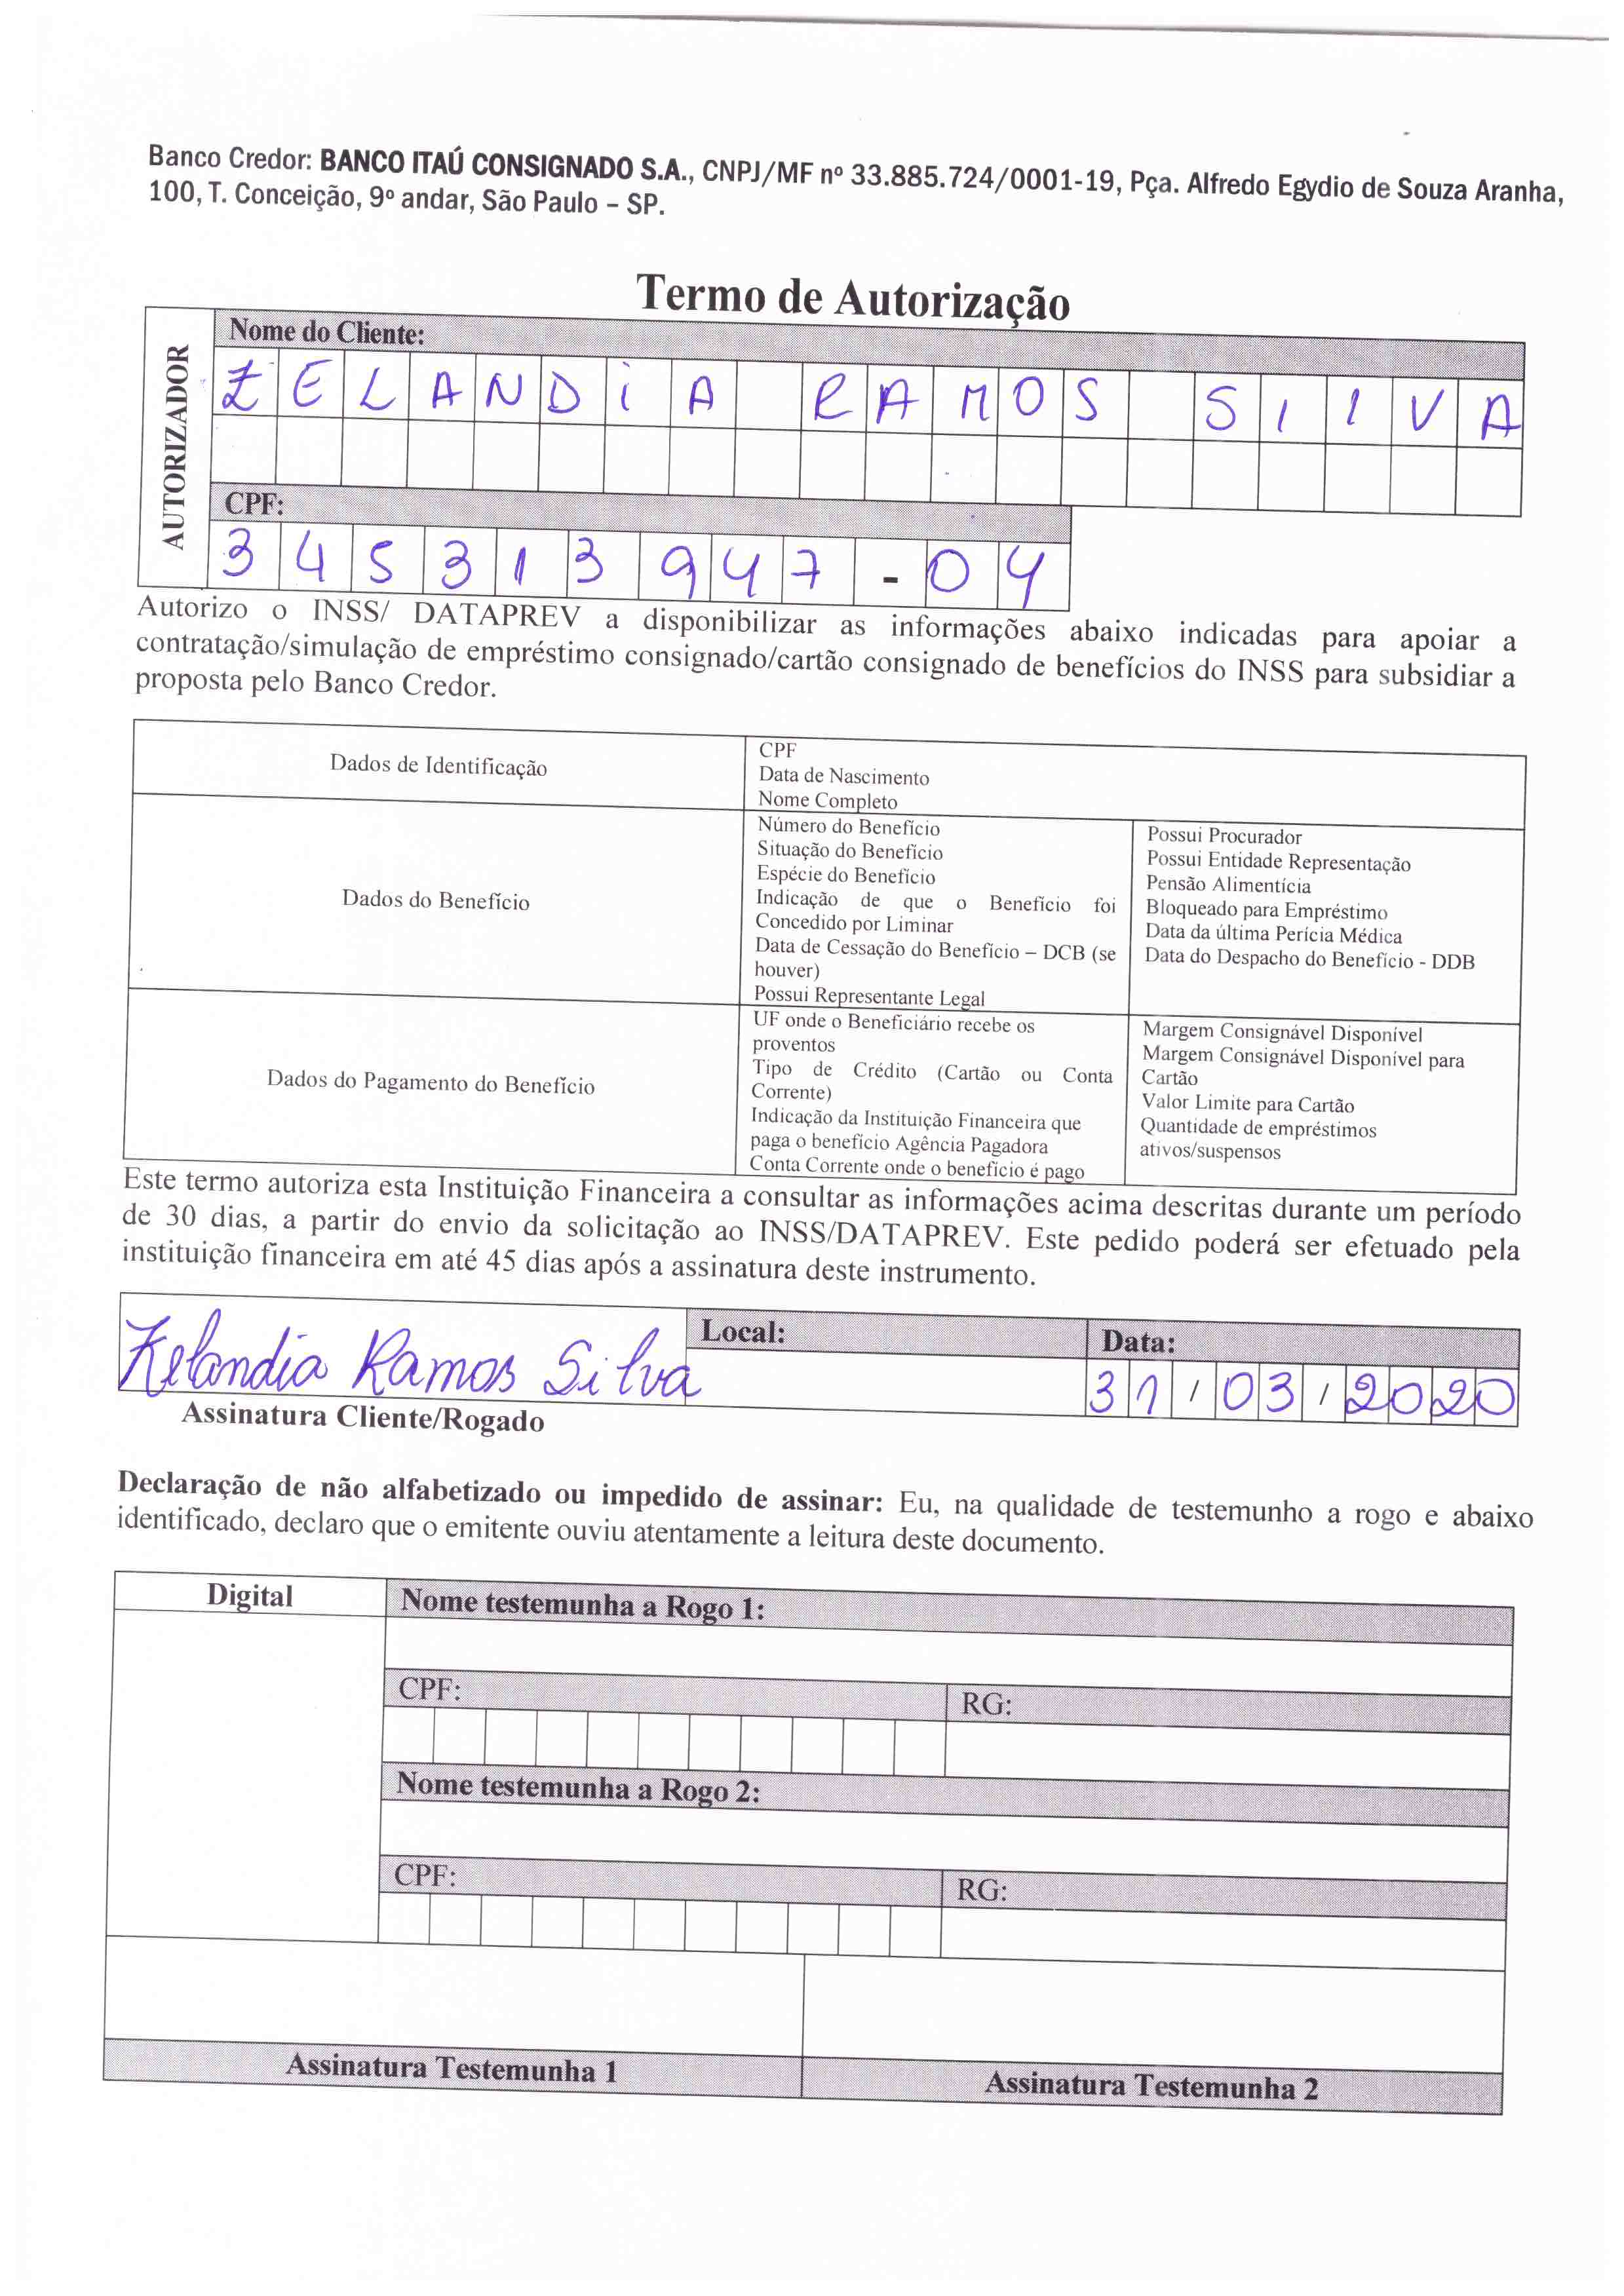 Banco Credor: BANCO ITAÚ CONSIGNADO S.A., CNPJ/MF nº 33.885.724/0001-19, Pça. Alfredo Egydio de Souza Aranha,
100, T. Conceição, 9º andar, São Paulo – SP.
Termo de Autorização
AUTORIZADOR
Nome do Cliente:
ZELANDiA RAMOS SIlVA
CPF:
345313947-04
Autorizo o INSS/ DATAPREV a disponibilizar as informações abaixo indicadas para apoiar a
contratação/simulação de empréstimo consignado/cartão consignado de benefícios do INSS para subsidiar a
proposta pelo Banco Credor.
Dados de Identificação
CPF
Data de Nascimento
Nome Completo
Dados do Benefício
Número do Benefício
Situação do Benefício
Espécie do Benefício
Indicação de que o Benefício foi
Concedido por Liminar
Data de Cessação do Benefício – DCB (se
houver)
Possui Representante Legal
Possui Procurador
Possui Entidade Representação
Pensão Alimentícia
Bloqueado para Empréstimo
Data da última Perícia Médica
Data do Despacho do Benefício - DDB
Dados do Pagamento do Benefício
UF onde o Beneficiário recebe os
proventos
Tipo de Crédito (Cartão ou Conta
Corrente)
Indicação da Instituição Financeira que
paga o benefício Agência Pagadora
Conta Corrente onde o benefício é pago
Margem Consignável Disponível
Margem Consignável Disponível para
Cartão
Valor Limite para Cartão
Quantidade de empréstimos
ativos/suspensos
Este termo autoriza esta Instituição Financeira a consultar as informações acima descritas durante um período
de 30 dias, a partir do envio da solicitação ao INSS/DATAPREV. Este pedido poderá ser efetuado pela
instituição financeira em até 45 dias após a assinatura deste instrumento.
Zelandia Ramos Silva
Assinatura Cliente/Rogado
Local:
Data:
31/03/2020
Declaração de não alfabetizado ou impedido de assinar: Eu, na qualidade de testemunho a rogo e abaixo
identificado, declaro que o emitente ouviu atentamente a leitura deste documento.
Digital
Nome testemunha a Rogo 1:
CPF:
RG:
Nome testemunha a Rogo 2:
CPF:
RG:
Assinatura Testemunha 1
Assinatura Testemunha 2